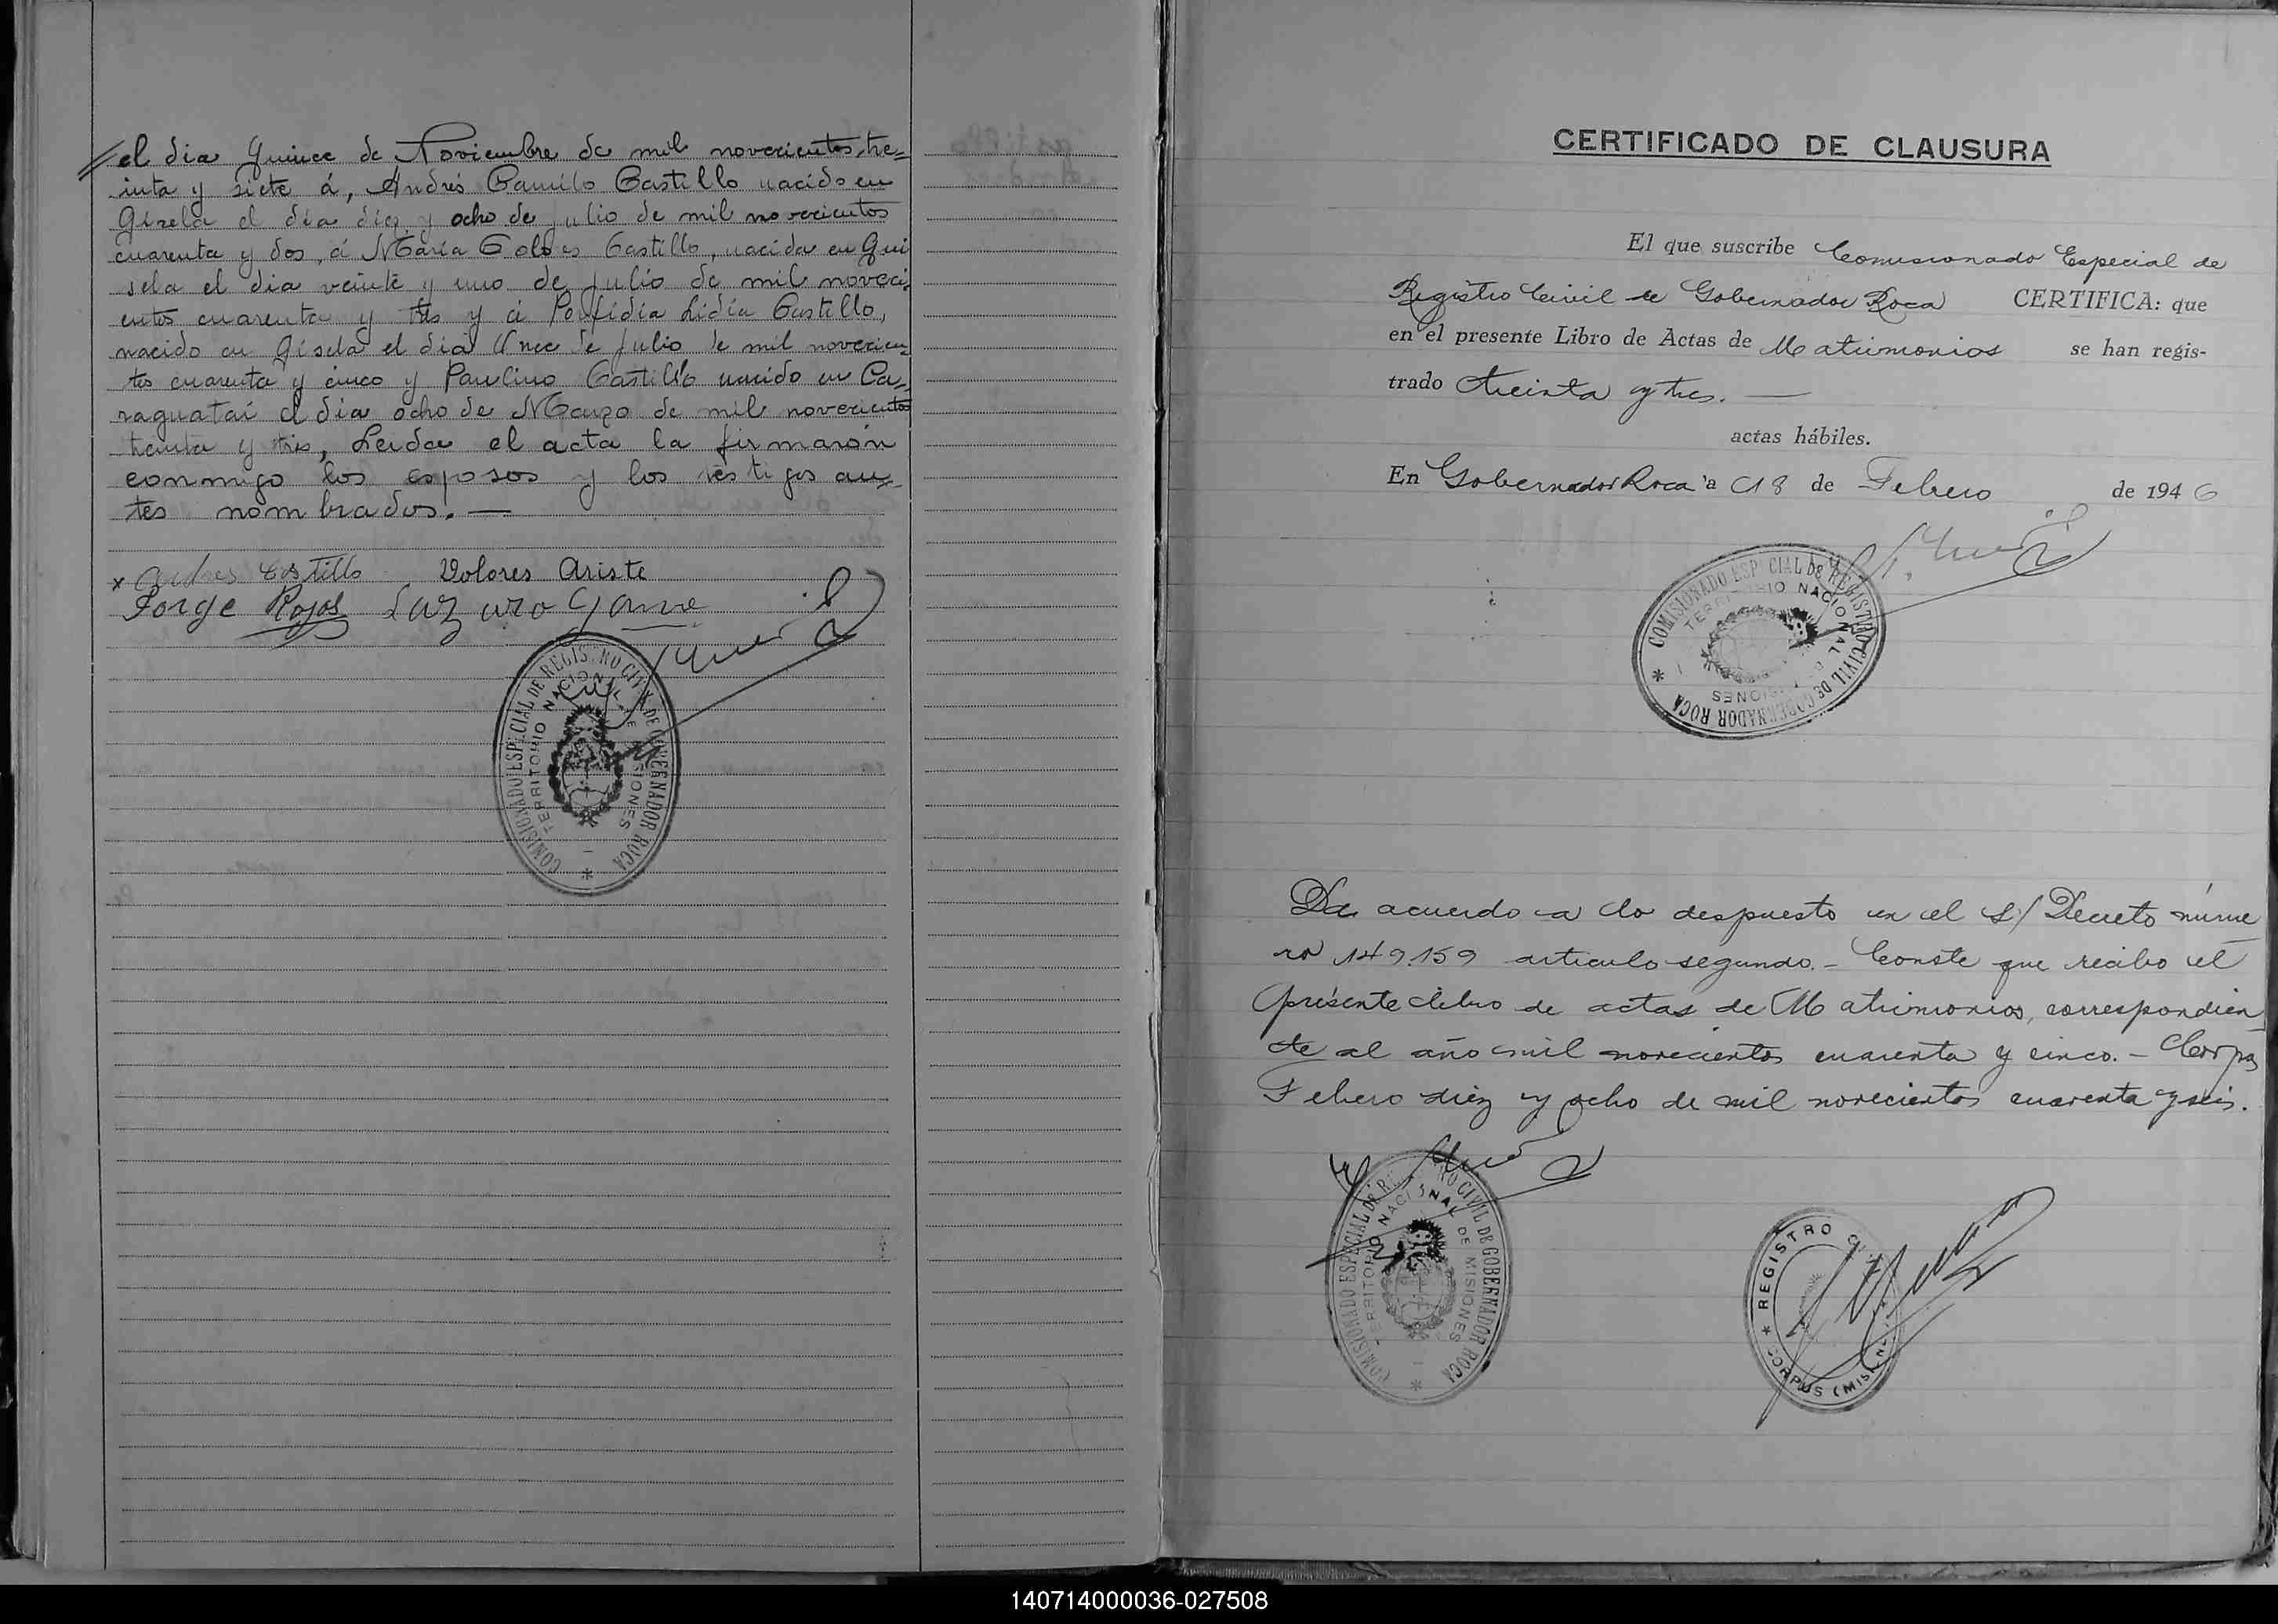 el dia quince de Noviembre de mil novecientos, tre=
inta y siete á, Andrés Camilo Castillo nacido en
Gisela el dia diez y ocho de julio de mil novecientos
cuarenta y dos, á María Dolores Castillo, nacida en Gui
sela el dia veinte y uno de julio de mil noveci=
entos cuarenta y tres y á Porfidia Lidia Castillo,
nacido en Gisela el dia Once de julio de mil novecien=
tos cuarenta y cinco y Paulino Castillo nacido en Ca=
raguatai el dia ocho de Marzo de mil novecientos
treinta y tres, Leida el acta la firmarón
conmigo los esposos y los testigos an=
tes nombrados. —
x Andres Castillo Dolores Ariste
Jorge Rojas Lazaro
COMISIONADO ESPECIAL DE REGISTRO CIVIL DE GOBERNADOR ROCA
TERRITORIO NACIONAL DE MISIONES
CERTIFICADO DE CLAUSURA
El que suscribe Comisionado Especial de
Registro Civil de Gobernador Roca CERTIFICA: que
en el presente Libro de Actas de Matrimonios se han regis-
trado treinta y tres. —
actas hábiles.
En Gobernador Roca a 18 de Febrero de 1946
COMISIONADO ESPECIAL DE REGISTRO CIVIL DE GOBERNADOR ROCA
TERRITORIO NACIONAL DE MISIONES
De acuerdo a lo despuesto en el S/ Decreto núme
ro 149.159 articulo segundo. - Conste que recibo el
presente libro de actas de Matrimonios, correspondien
te al año mil novecientos cuarenta y cinco. - Corpus
Febrero diez y ocho de mil novecientos cuarenta y seis.
COMISIONADO ESPECIAL DE REGISTRO CIVIL DE GOBERNADOR ROCA
TERRITORIO NACIONAL DE MISIONES
REGISTRO
CORPUS (MISIONES)
140714000036-027508